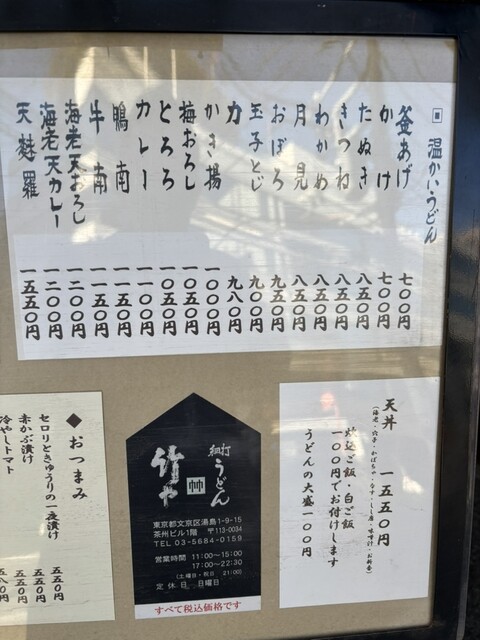 温かいうどん
釜あげ 七〇〇円
かけ 七〇〇円
たぬき 八五〇円
きつね 八五〇円
わかめ 八五〇円
月見 八五〇円
おぼろ 九五〇円
玉子とじ 九〇〇円
力 九八〇円
かき揚 一〇〇〇円
梅おろし 一〇五〇円
とろろ 一〇五〇円
カレー 一一〇〇円
鴨南 一一五〇円
牛南 一一五〇円
海老天おろし 一二〇〇円
海老天カレー 一二〇〇円
天麩羅 一五五〇円
天丼 一五五〇円
(海老・穴子・かぼちゃ・なす・しし唐・味噌汁・お新香)
炊込ご飯・白ご飯
一〇〇円でお付けします
うどんの大盛一〇〇円
手打うどん
竹や
東京都文京区湯島1-9-15
茶州ビル1階 〒113-0034
TEL 03-5684-0159
営業時間 11:00〜15:00
17:00〜22:30
(土曜日・祝日 21:00)
定休日 日曜日
すべて税込価格です
◆おつまみ
セロリときゅうりの一夜漬け 五五〇円
赤かぶ漬け 五五〇円
冷やしトマト 五五〇円